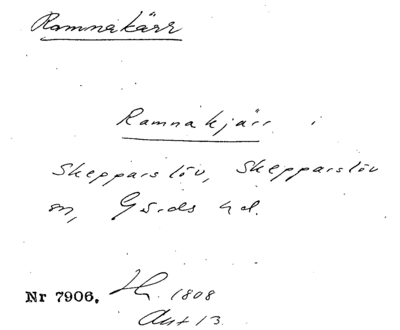 Ramnakärr
Ramnakjärr i
Skepparslöv, Skepparslöv
sn, Gärds hd.
Nr 7906. 1808
Akt 13.